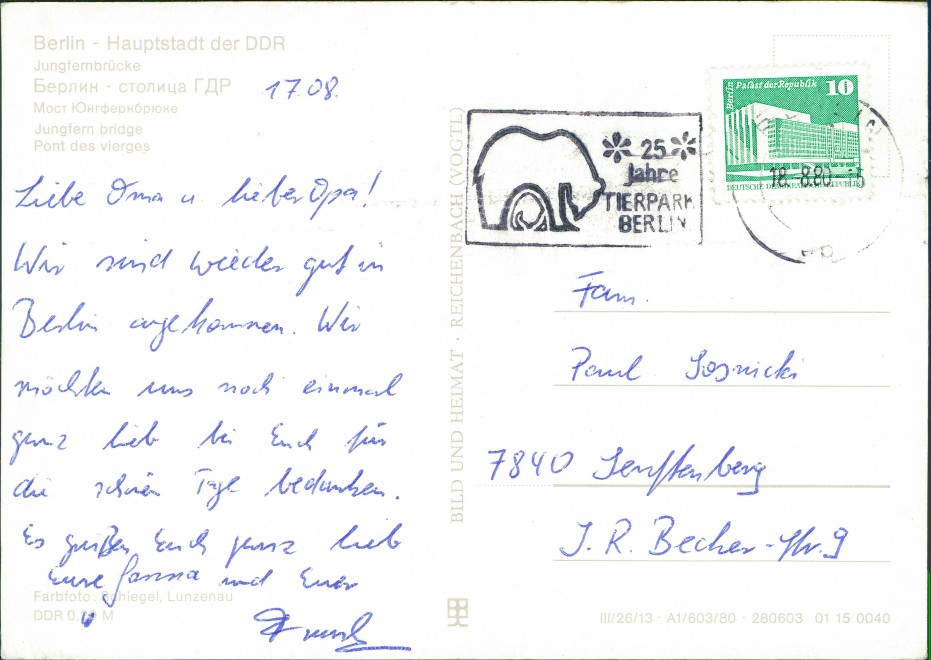 Berlin - Hauptstadt der DDR
Jungfernbrücke
Берлин - столица ГДР
Мост Юнгфернбрюке
Jungfern bridge
Pont des vierges
17.08.
Liebe Oma u lieber Opa!
Wir sind wieder gut in
Berlin angekommen. Wir
möchten uns noch einmal
ganz lieb bei Euch für
die schönen Tage bedanken.
Es grüßen Euch ganz lieb
Eure und Euer
Farbfoto: Schiegel, Lunzenau
DDR M
BILD UND HEIMAT · REICHENBACH (VOGTL)
25
Jahre
TIERPARK
BERLIN
Berlin Palast der Republik 10
DEUTSCHE DEMOKRATISCHE REPUBLIK
18.-8.80
Fam.
Paul Sosnicki
7840 Senftenberg
J. R. Becher-Str. 9
III/26/13 · A1/603/80 · 280603 01 15 0040